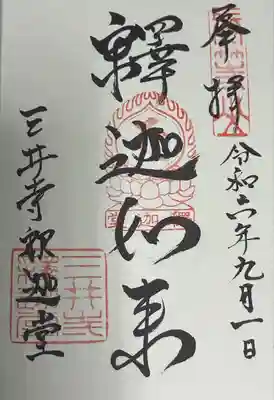 奉拝
令和六年九月一日
釋迦如来
三井寺釈迦堂